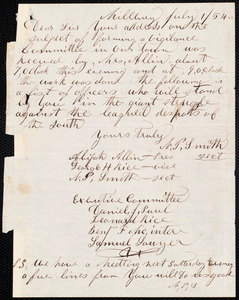 Millbury July 1/54
Dear Sir Your address on the
subject of forming a vigilance
Committee in our town was
received by Mrs. Allin, about
7 oclock this evening and at 9 oclock
the work was done. the following is
a list of officers who will stand
by you in the giant struggle
against the leagued despots of
the South
Yours truly
A. P. Smith
sect
Elijah Allin - Pres
George H Rice -
A. P. Smith - sect
Executive Committee
Daniel Paul
Leonard Rice
Benj F McIntire
Samuel Sawyer
P S, We have a meeting next Saturday Evening
a few lines from you will do us good